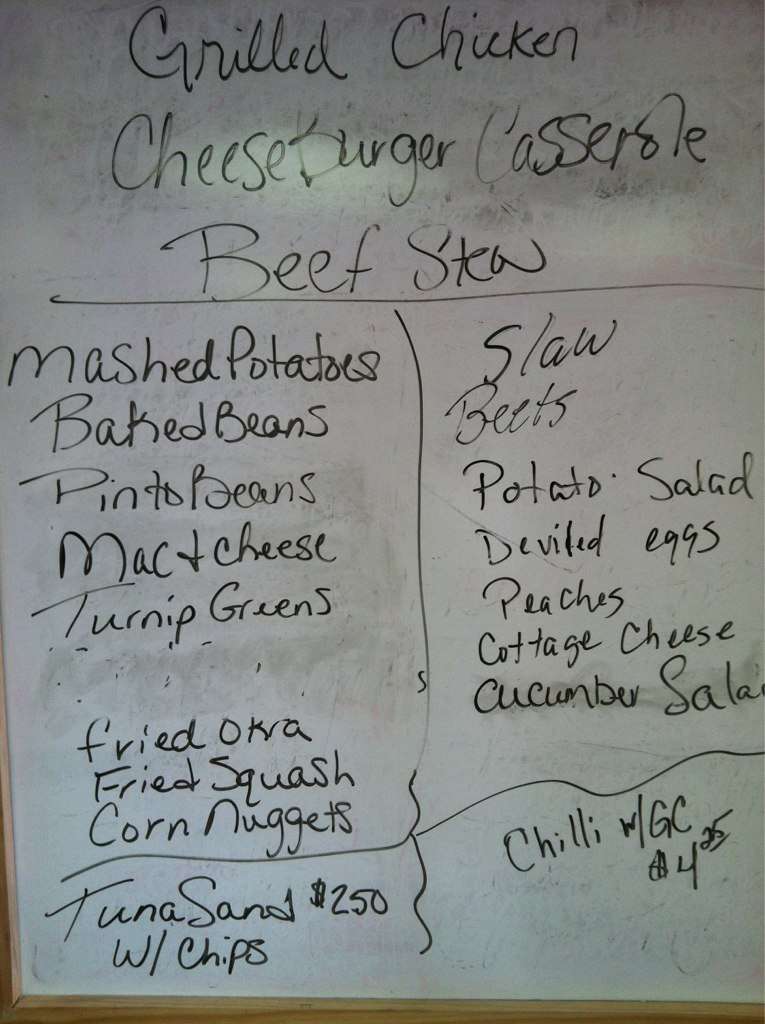 Grilled Chicken
Cheeseburger Casserole
Beef Stew
Mashed Potatoes
Baked Beans
Pinto Beans
Mac + Cheese
Turnip Greens
Fried Okra
Fried Squash
Corn Nuggets
Tuna Sand $2.50
W/ Chips
Slaw
Beets
Potato Salad
Deviled eggs
Peaches
Cottage Cheese
Cucumber Sala
Chilli w/GC
$4.25